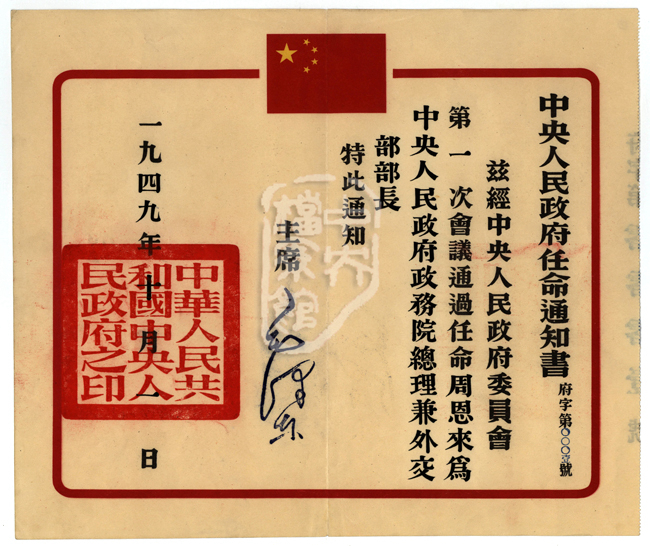 中央人民政府任命通知書
府字第〇〇〇壹號
茲經中央人民政府委員會
第一次會議通過任命周恩來爲
中央人民政府政務院總理兼外交
部部長
特此通知
主席 毛澤東
一九四九年十月一日
中華人民共
和國中央人
民政府之印